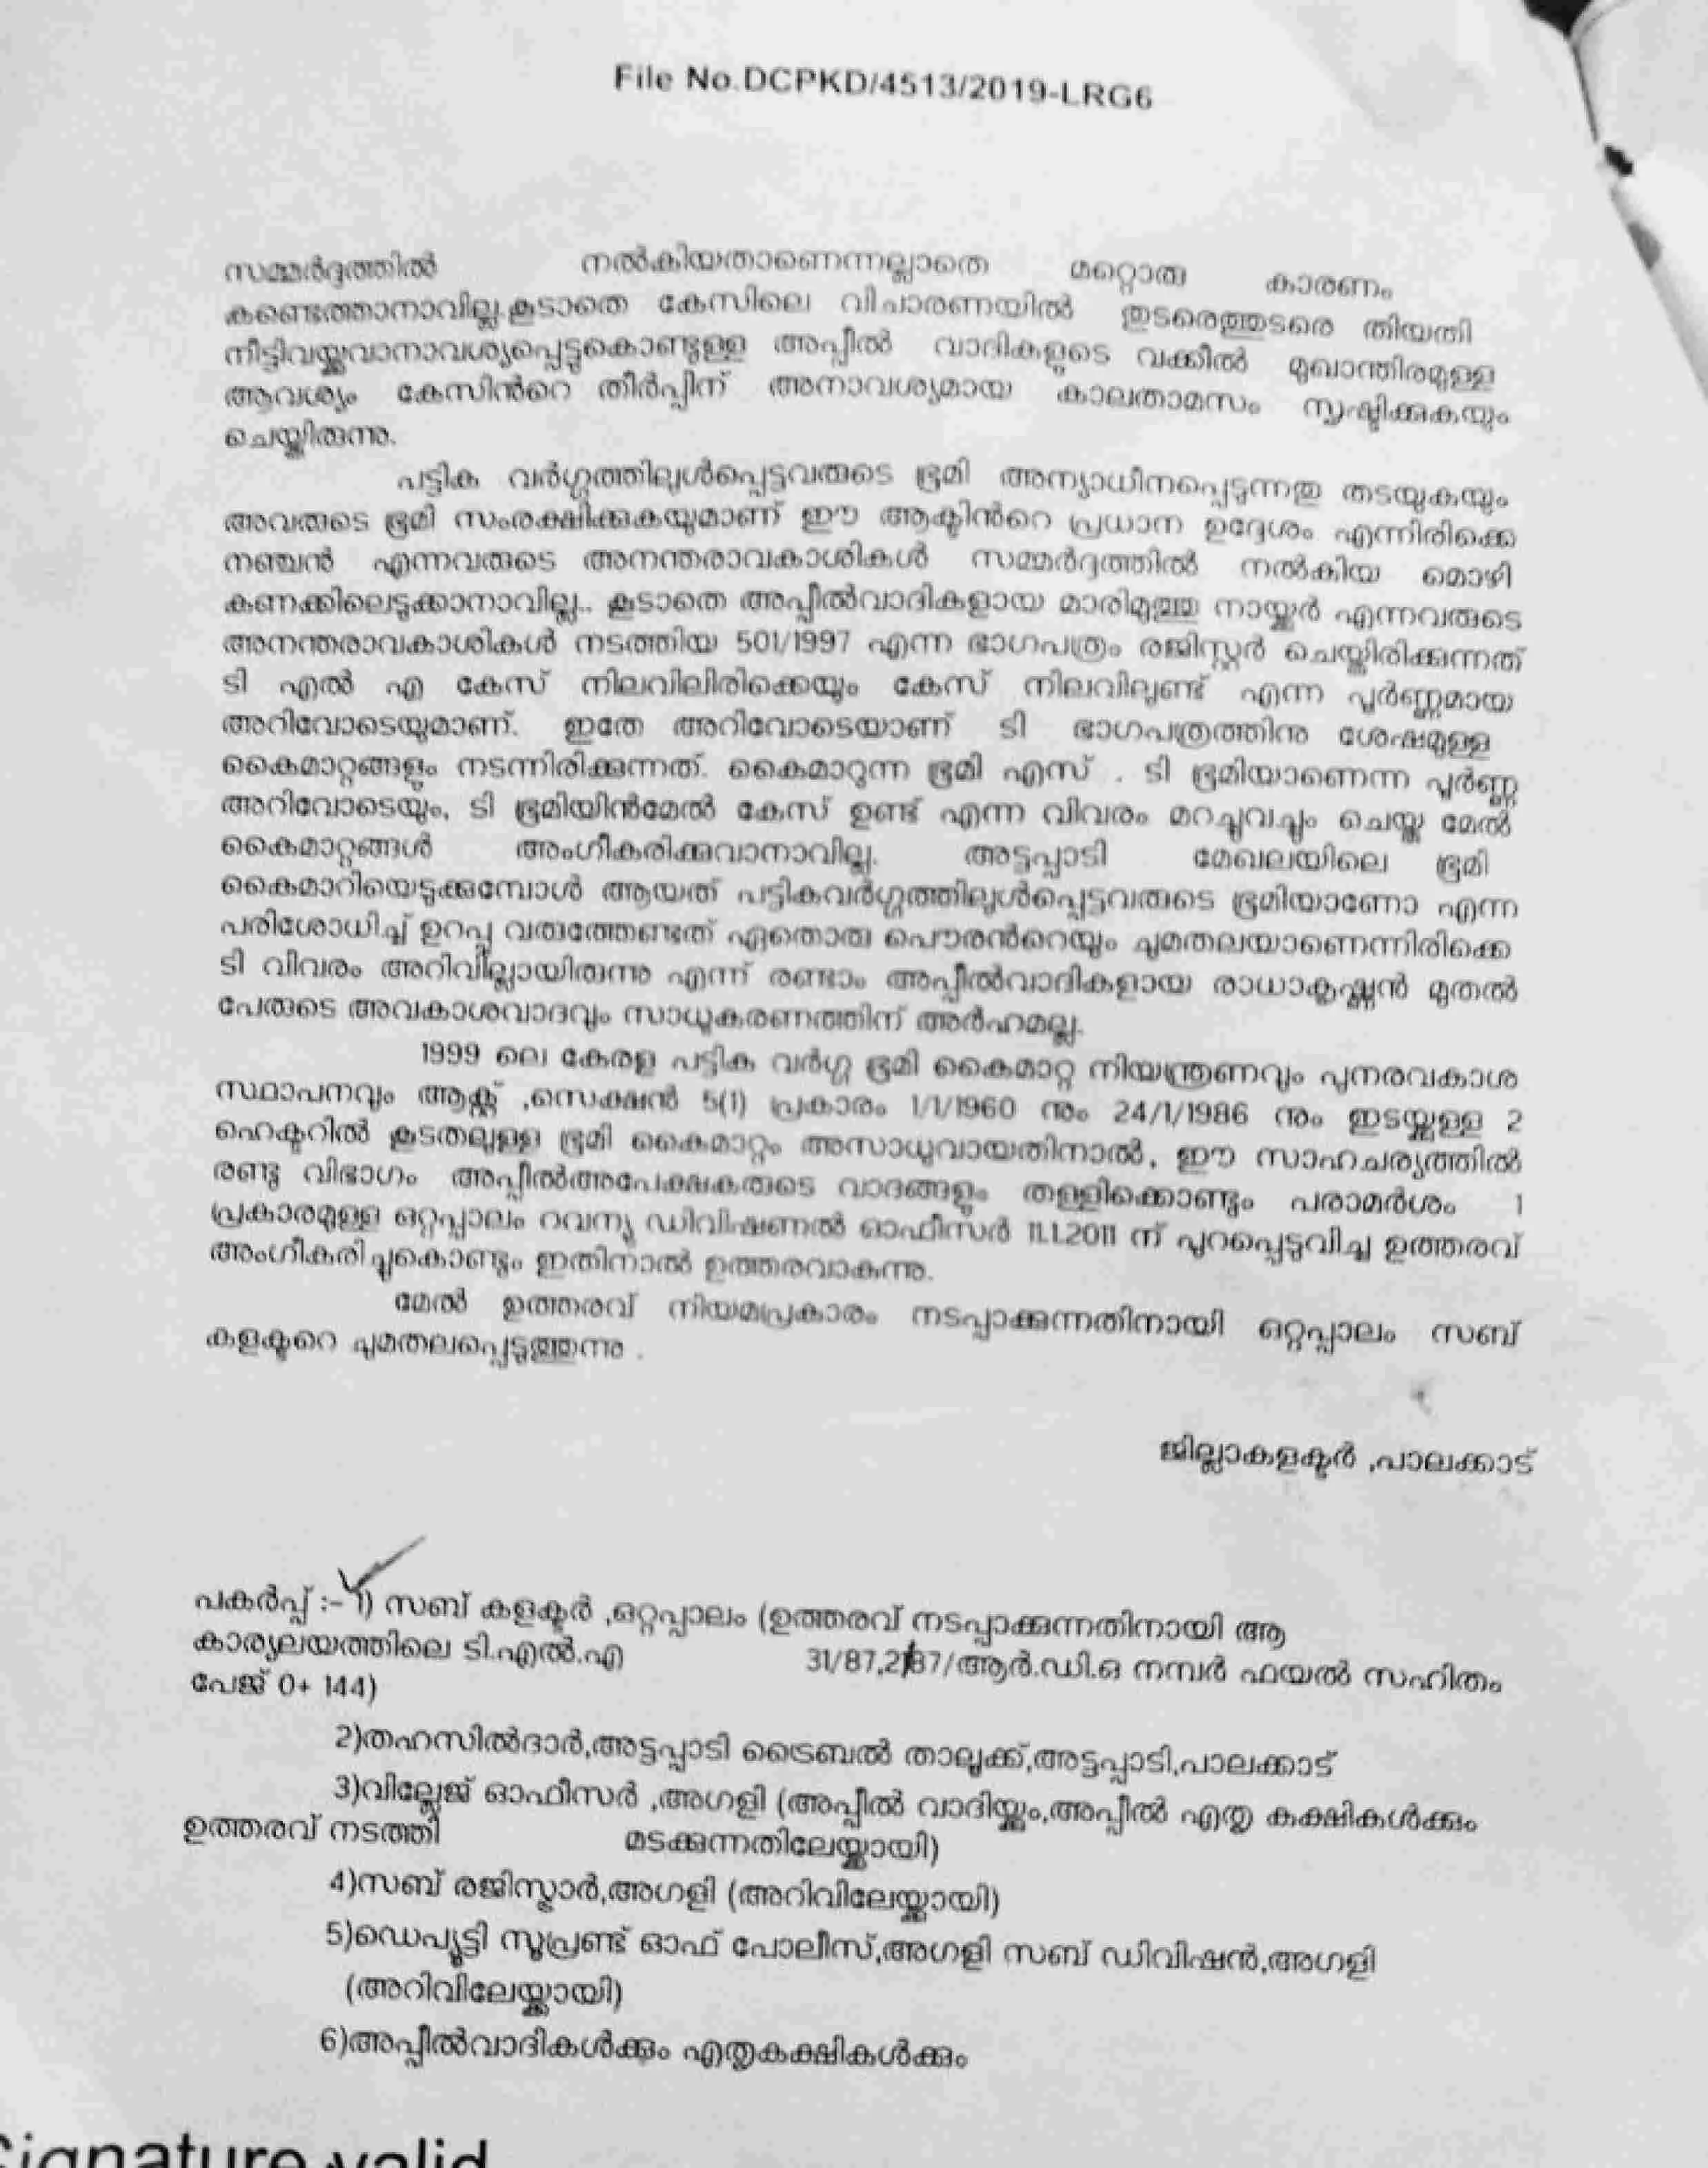 File No.DCPKD/4513/2019-LRG6
സമ്മർദ്ദത്തിൽ നൽകിയതാണെന്നല്ലാതെ മറ്റൊരു കാരണം
കണ്ടെത്താനാവില്ല.കൂടാതെ കേസിലെ വിചാരണയിൽ തുടരെത്തുടരെ തിയതി
നീട്ടിവയ്ക്കുവാനാവശ്യപ്പെട്ടുകൊണ്ടുള്ള അപ്പീൽ വാദികളുടെ വക്കീൽ മുഖാന്തിരമുള്ള
ആവശ്യം കേസിൻറെ തീർപ്പിന് അനാവശ്യമായ കാലതാമസം സൃഷ്ടിക്കുകയും
ചെയ്തിരുന്നു.
പട്ടിക വർഗ്ഗത്തിലുൾപ്പെട്ടവരുടെ ഭൂമി അന്യാധീനപ്പെടുന്നതു തടയുകയും
അവരുടെ ഭൂമി സംരക്ഷിക്കുകയുമാണ് ഈ ആക്ടിൻറെ പ്രധാന ഉദ്ദേശം എന്നിരിക്കെ
നഞ്ചൻ എന്നവരുടെ അനന്തരാവകാശികൾ സമ്മർദ്ദത്തിൽ നൽകിയ മൊഴി
കണക്കിലെടുക്കാനാവില്ല.. കൂടാതെ അപ്പീൽവാദികളായ മാരിമുത്തു നായ്ക്കർ എന്നവരുടെ
അനന്തരാവകാശികൾ നടത്തിയ 501/1997 എന്ന ഭാഗപത്രം രജിസ്റ്റർ ചെയ്തിരിക്കുന്നത്
ടി എൽ എ കേസ് നിലവിലിരിക്കെയും കേസ് നിലവിലുണ്ട് എന്ന പൂർണ്ണമായ
അറിവോടെയുമാണ്. ഇതേ അറിവോടെയാണ് ടി ഭാഗപത്രത്തിനു ശേഷമുള്ള
കൈമാറ്റങ്ങളും നടന്നിരിക്കുന്നത്. കൈമാറുന്ന ഭൂമി എസ് . ടി ഭൂമിയാണെന്ന പൂർണ്ണ
അറിവോടെയും, ടി ഭൂമിയിൻമേൽ കേസ് ഉണ്ട് എന്ന വിവരം മറച്ചുവച്ചും ചെയ്ത മേൽ
കൈമാറ്റങ്ങൾ അംഗീകരിക്കുവാനാവില്ല. അട്ടപ്പാടി മേഖലയിലെ ഭൂമി
കൈമാറിയെടുക്കുമ്പോൾ ആയത് പട്ടികവർഗ്ഗത്തിലുൾപ്പെട്ടവരുടെ ഭൂമിയാണോ എന്ന
പരിശോധിച്ച് ഉറപ്പു വരുത്തേണ്ടത് ഏതൊരു പൌരൻറെയും ചുമതലയാണെന്നിരിക്കെ
ടി വിവരം അറിവില്ലായിരുന്നു എന്ന് രണ്ടാം അപ്പീൽവാദികളായ രാധാകൃഷ്ണൻ മുതൽ
പേരുടെ അവകാശവാദവും സാധൂകരണത്തിന് അർഹമല്ല.
1999 ലെ കേരള പട്ടിക വർഗ്ഗ ഭൂമി കൈമാറ്റ നിയന്ത്രണവും പുനരവകാശ
സ്ഥാപനവും ആക്ട് ,സെക്ഷൻ 5(1) പ്രകാരം 1/1/1960 നും 24/1/1986 നും ഇടയ്ക്കുള്ള 2
ഹെക്ടറിൽ കൂടതലുള്ള ഭൂമി കൈമാറ്റം അസാധുവായതിനാൽ, ഈ സാഹചര്യത്തിൽ
രണ്ടു വിഭാഗം അപ്പീൽഅപേക്ഷകരുടെ വാദങ്ങളും തള്ളിക്കൊണ്ടും പരാമർശം 1
പ്രകാരമുള്ള ഒറ്റപ്പാലം റവന്യൂ ഡിവിഷണൽ ഓഫീസർ 11.1.2011 ന് പുറപ്പെടുവിച്ച ഉത്തരവ്
അംഗീകരിച്ചുകൊണ്ടും ഇതിനാൽ ഉത്തരവാകുന്നു.
മേൽ ഉത്തരവ് നിയമപ്രകാരം നടപ്പാക്കുന്നതിനായി ഒറ്റപ്പാലം സബ്
കളക്ടറെ ചുമതലപ്പെടുത്തുന്നു .
ജില്ലാകളക്ടർ ,പാലക്കാട്
പകർപ്പ് :- 1) സബ് കളക്ടർ ,ഒറ്റപ്പാലം (ഉത്തരവ് നടപ്പാക്കുന്നതിനായി ആ
കാര്യലയത്തിലെ ടി.എൽ.എ 31/87,2/87/ആർ.ഡി.ഒ നമ്പർ ഫയൽ സഹിതം
പേജ് 0+ 144)
2)തഹസിൽദാർ,അട്ടപ്പാടി ട്രൈബൽ താലൂക്ക്,അട്ടപ്പാടി,പാലക്കാട്
3)വില്ലേജ് ഓഫീസർ ,അഗളി (അപ്പീൽ വാദിയ്ക്കും,അപ്പീൽ എതൃ കക്ഷികൾക്കും
ഉത്തരവ് നടത്തി മടക്കുന്നതിലേയ്ക്കായി)
4)സബ് രജിസ്ട്രാർ,അഗളി (അറിവിലേയ്ക്കായി)
5)ഡെപ്യൂട്ടി സൂപ്രണ്ട് ഓഫ് പോലീസ്,അഗളി സബ് ഡിവിഷൻ,അഗളി
(അറിവിലേയ്ക്കായി)
6)അപ്പീൽവാദികൾക്കും എതൃകക്ഷികൾക്കും
Signature valid